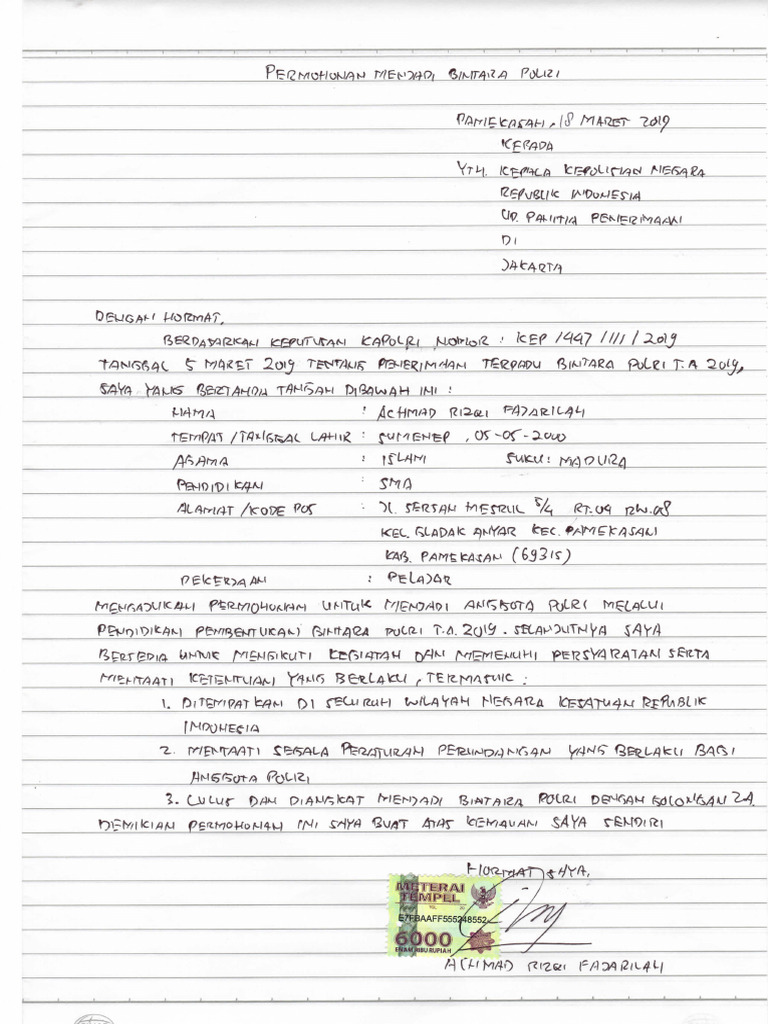 PERMOHONAN MENJADI BINTARA POLRI
PAMEKASAN, 18 MARET 2019
KEPADA
YTH. KEPALA KEPOLISIAN NEGARA
REPUBLIK INDONESIA
UP. PANITIA PENERIMAAN
DI
JAKARTA
DENGAN HORMAT,
BERDASARKAN KEPUTUSAN KAPOLRI NOMOR : KEP /447 /III / 2019
TANGGAL 5 MARET 2019 TENTANG PENERIMAAN TERPADU BINTARA POLRI T.A 2019,
SAYA YANG BERTANDA TANGAN DIBAWAH INI :
NAMA : ACHMAD RIZQI FAJARILAH
TEMPAT /TANGGAL LAHIR : SUMENEP , 05-05-2000
AGAMA : ISLAM SUKU : MADURA
PENDIDIKAN : SMA
ALAMAT /KODE POS : JL. SERSAN MESRUL 5/4 RT.04 RW.08
KEL. GLADAK ANYAR KEC. PAMEKASAN
KAB. PAMEKASAN (69315)
PEKERJAAN : PELAJAR
MENGAJUKAN PERMOHONAN UNTUK MENJADI ANGGOTA POLRI MELALUI
PENDIDIKAN PEMBENTUKAN BINTARA POLRI T.A. 2019. SELANJUTNYA SAYA
BERSEDIA UNTUK MENGIKUTI KEGIATAN DAN MEMENUHI PERSYARATAN SERTA
MENTAATI KETENTUAN YANG BERLAKU, TERMASUK :
1. DITEMPATKAN DI SELURUH WILAYAH NEGARA KESATUAN REPUBLIK
INDONESIA
2. MENTAATI SEGALA PERATURAN PERUNDANGAN YANG BERLAKU BAGI
ANGGOTA POLRI
3. LULUS DAN DIANGKAT MENJADI BINTARA POLRI DENGAN GOLONGAN 2A
DEMIKIAN PERMOHONAN INI SAYA BUAT ATAS KEMAUAN SAYA SENDIRI
HORMAT SAYA,
METERAI
TEMPEL
E7FBAAFF555248552
6000
ENAM RIBU RUPIAH
ACHMAD RIZQI FAJARILAH